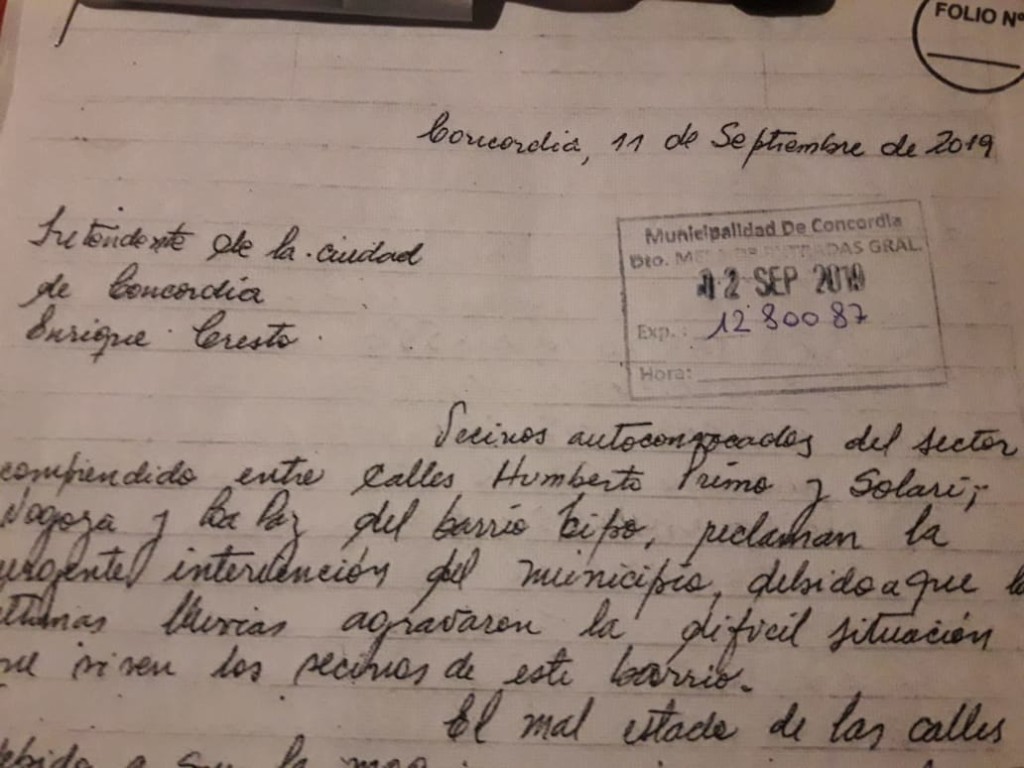 FOLIO Nº
Concordia, 11 de Septiembre de 2019
Municipalidad De Concordia
Dto. MESA DE ENTRADAS GRAL.
12 SEP 2019
Exp.: 1280087
Hora:
Intendente de la ciudad
de Concordia
Enrique Cresto.
Vecinos autoconvocados del sector
comprendido entre calles Humberto Primo y Solari;
Nogoya y La Paz del barrio Tipo, reclaman la
urgente intervención del municipio, debido a que
últimas lluvias agravaron la dificil situación
viven los vecinos de este barrio.
El mal estado de las calles
debido a